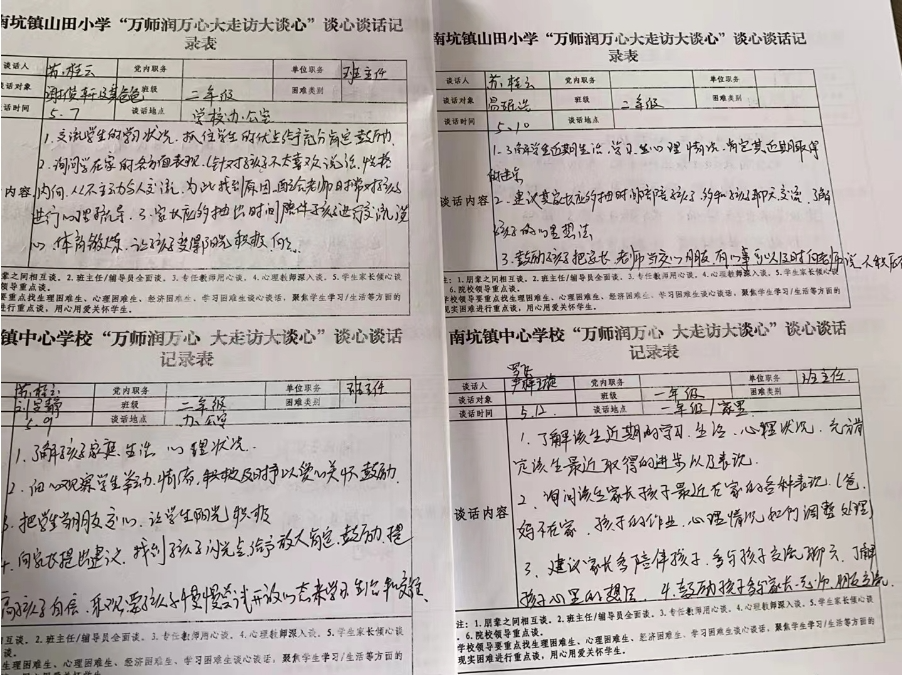 南坑镇山田小学“万师润万心大走访大谈心”谈心谈话记
录表
谈话人 苏桂云 党内职务 单位职务 班主任
谈话对象 班级 二年级 困难类别
谈话时间 5.7 谈话地点 学校办公室
内容
1.交流学生的学习状况,抓住学生的优点给予充分肯定鼓励。
2.询问学生在家的各方面表现。(针对孩子不太喜欢说话,性格
内向,从不主动与人交流,为此找到原因,面会老师日常对孩子
进行心理指导。3.家长应多抽出时间陪伴孩子进行交流谈
心、体育锻炼,让孩子变得阳光积极向上。
辈之间相互谈。2.班主任/辅导员全面谈。3.专任教师用心谈。4.心理教师深入谈。5.学生家长倾心谈
领导重点谈。
要重点找生理困难生、心理困难生、经济困难生、学习困难生谈心谈话,聚焦学生学习/生活等方面的
进行重点谈,用心用爱关怀学生。
南坑镇山田小学“万师润万心大走访大谈心”谈心谈话记
录表
谈话人 苏桂云 党内职务 单位职务
谈话对象 班级 二年级 困难类别
谈话时间 5.10 谈话地点
谈话内容
1.了解学生近期生活、学习、心理情况,肯定其近期取得
的进步
2.建议其家长应多抽时间陪陪孩子,多和孩子聊天交流,了解
孩子的心里想法
3.鼓励孩子把家长、老师当交心朋友,有心事可以及时向老师说
注:1.朋辈之间相互谈。2.班主任/辅导员全面谈。3.专任教师用心谈。4.心理教师深入谈。5.学生家长倾心谈
。6.院校领导重点谈。
学校领导要重点找生理困难生、心理困难生、经济困难生、学习困难生谈心谈话,聚焦学生学习/生活等方面的
现实困难进行重点谈,用心用爱关怀学生。
镇中心学校“万师润万心 大走访大谈心”谈心谈话
记录表
苏桂云 党内职务 单位职务 班主任
班级 二年级 困难类别
5.9 谈话地点 办公室
1.了解孩子家庭、生活、心理状况。
2.细心观察学生举动、情绪,积极及时予以爱心关怀鼓励
3.把学生当朋友交心,让学生阳光积极
4.向家长提出建议,找到孩子闪光点给予放大肯定、鼓励,提
高孩子自信,
互谈。2.班主任/辅导员全面谈。3.专任教师用心谈。4.心理教师深入谈。5.学生家长倾心谈
谈。
生理困难生、心理困难生、经济困难生、学习困难生谈心谈话,聚焦学生学习/生活等方面的
点谈,用心用爱关怀学生。
南坑镇中心学校“万师润万心 大走访大谈心”谈心谈话
记录表
谈话人 党内职务 单位职务 班主任
谈话对象 班级 一年级 困难类别
谈话时间 5.12 谈话地点 一年级/家里
谈话内容
1.了解该生近期的学习、生活、心理状况,充分肯
定该生最近取得的进步以及表现。
2.询问该生家长孩子最近在家的各种表现。(爸
妈不在家,孩子的作业、心理情况如何调整处理)
3.建议家长多陪伴孩子,多与孩子交流聊天,了解
孩子心里的想法。4.鼓励孩子多与家长、老师、朋友交流
注:1.朋辈之间相互谈。2.班主任/辅导员全面谈。3.专任教师用心谈。4.心理教师深入谈。5.学生家长倾心谈
。6.院校领导重点谈。
学校领导要重点找生理困难生、心理困难生、经济困难生、学习困难生谈心谈话,聚焦学生学习/生活等方面的
现实困难进行重点谈,用心用爱关怀学生。